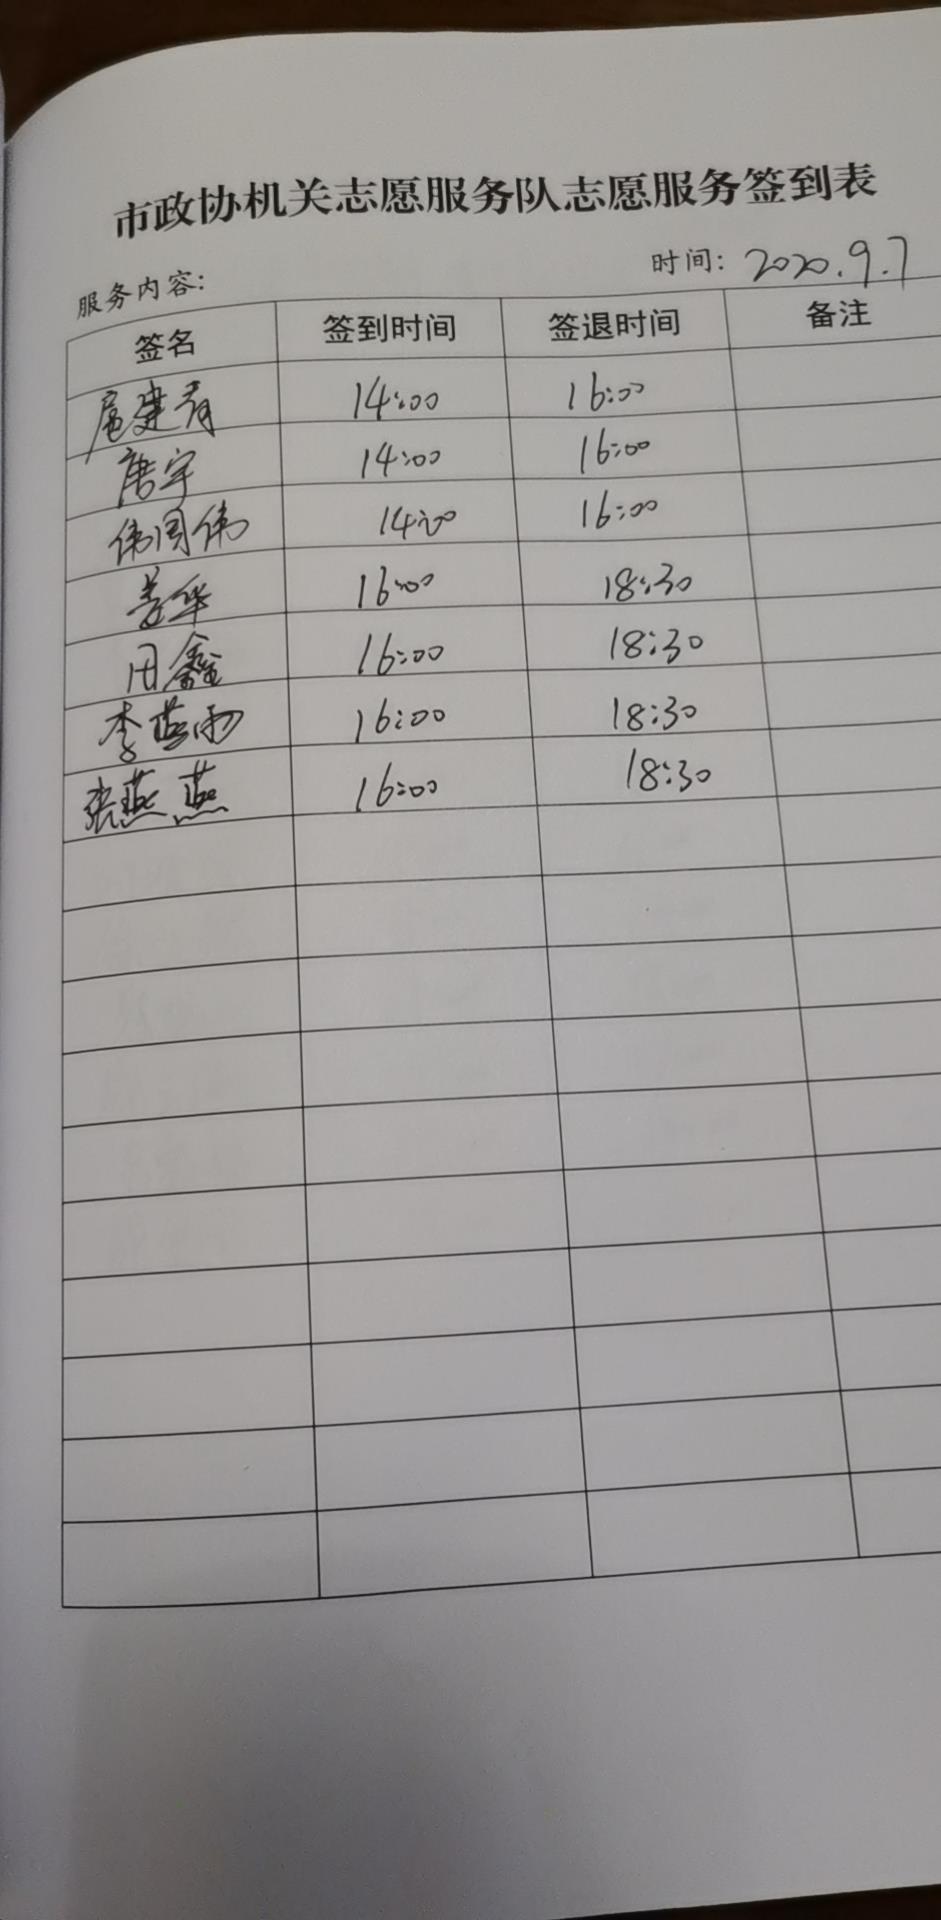 市政协机关志愿服务队志愿服务签到表
服务内容: 时间: 2020.9.7
签名 签到时间 签退时间 备注
扈建青 14:00 16:00
唐宇 14:00 16:00
14:00 16:00
姜华 16:00 18:30
田鑫 16:00 18:30
李燕雨 16:00 18:30
张燕燕 16:00 18:30